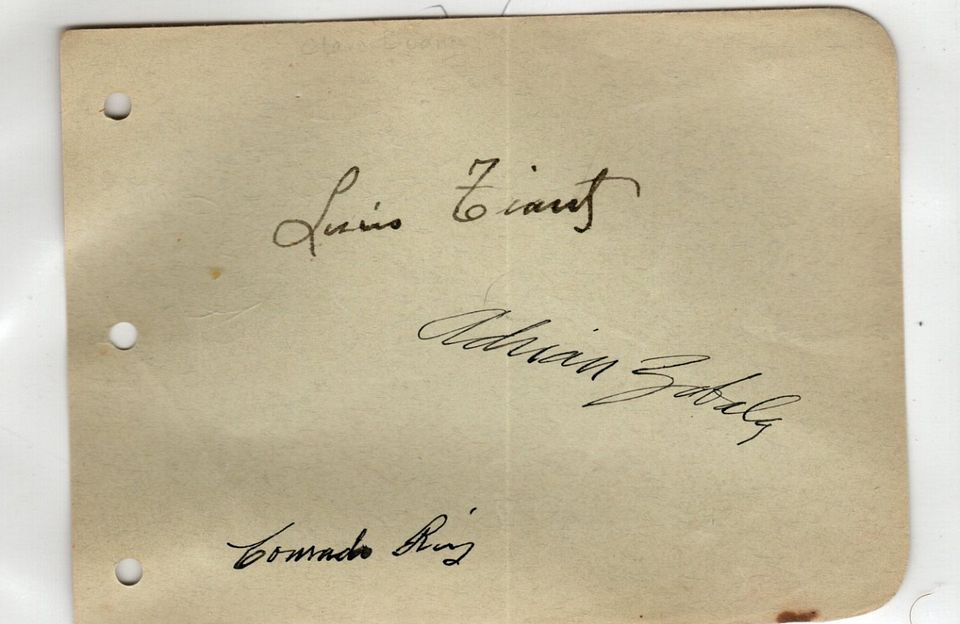 Luis Tiant
Adrian Zabala
Conrado Ruiz